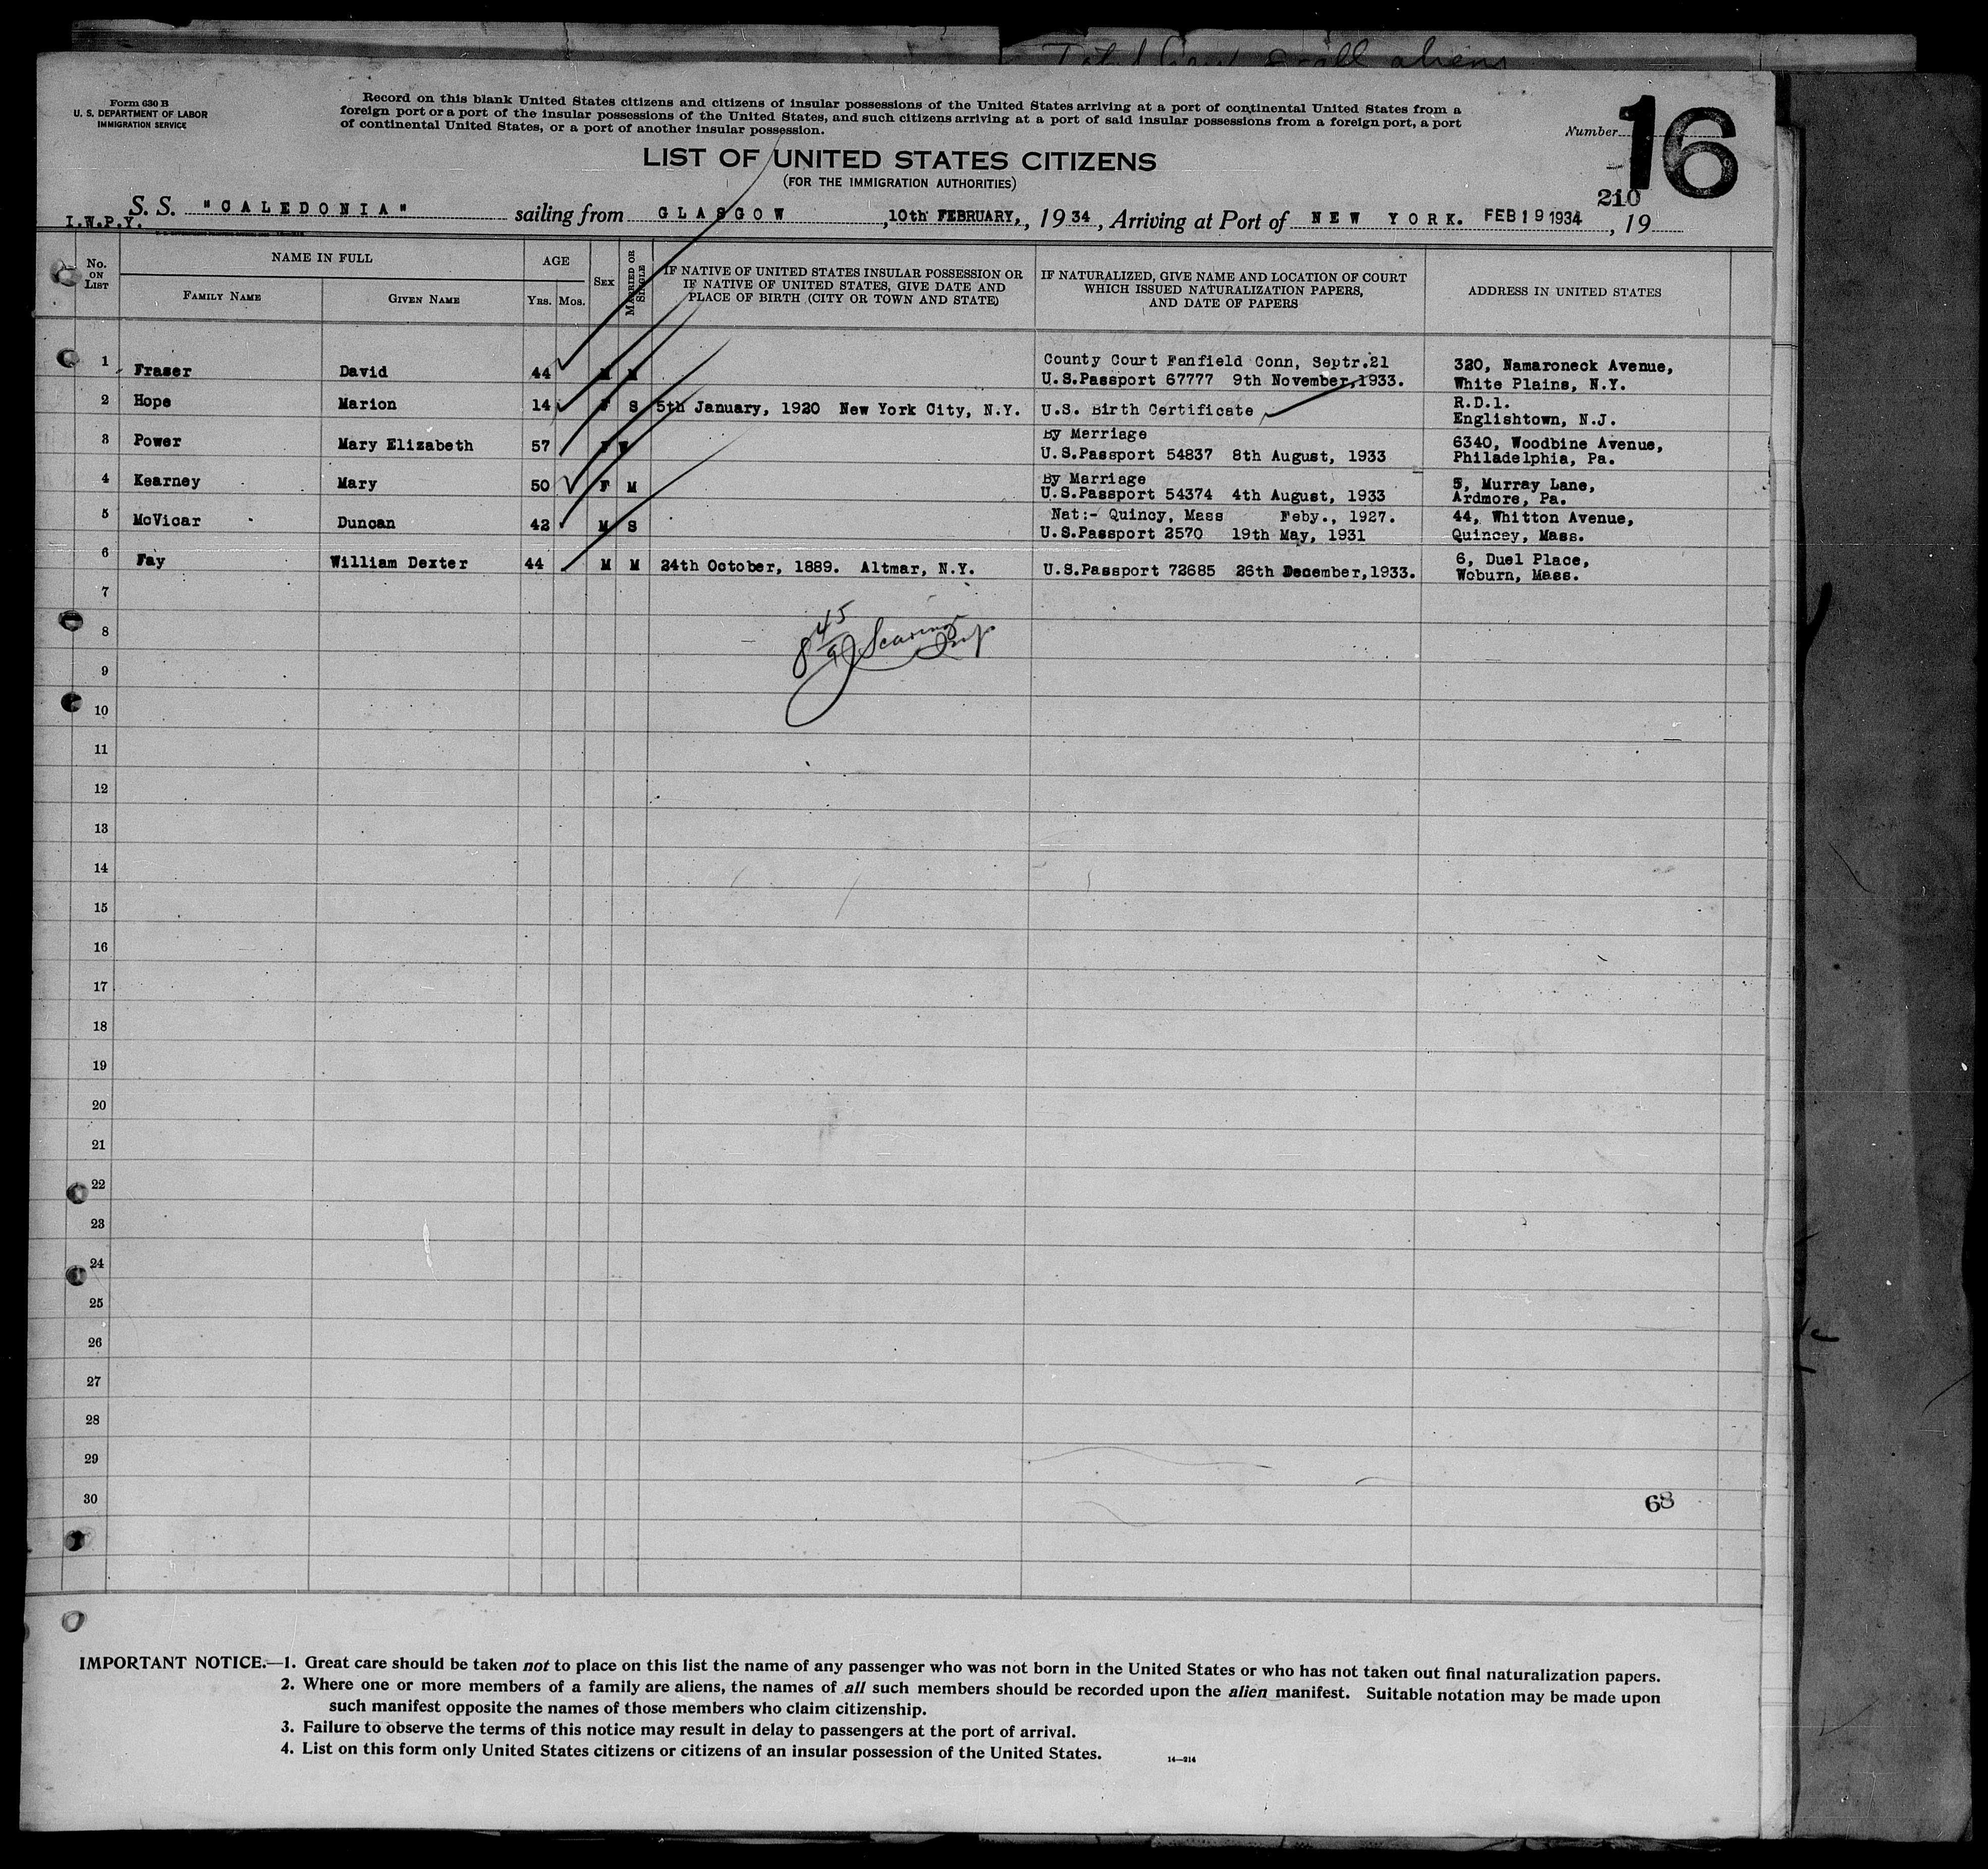 Form 630 B
U. S. DEPARTMENT OF LABOR
IMMIGRATION SERVICE
Record on this blank United States citizens and citizens of insular possessions of the United States arriving at a port of continental United States from a
foreign port or a port of the insular possessions of the United States, and such citizens arriving at a port of said insular possessions from a foreign port, a port
of continental United States, or a port of another insular possession.
Number 16
LIST OF UNITED STATES CITIZENS
(FOR THE IMMIGRATION AUTHORITIES)
210
S. S. "CALEDONIA" sailing from GLASGOW, 10th FEBRUARY, , 1934, Arriving at Port of NEW YORK. FEB 19 1934, 19
I.W.P.Y.
No. ON LIST
NAME IN FULL
FAMILY NAME
GIVEN NAME
AGE
YRS. MOS.
SEX
MARRIED OR SINGLE
IF NATIVE OF UNITED STATES INSULAR POSSESSION OR
IF NATIVE OF UNITED STATES, GIVE DATE AND
PLACE OF BIRTH (CITY OR TOWN AND STATE)
IF NATURALIZED, GIVE NAME AND LOCATION OF COURT
WHICH ISSUED NATURALIZATION PAPERS,
AND DATE OF PAPERS
ADDRESS IN UNITED STATES
1 Fraser David 44 M M County Court Fanfield Conn, Septr.21 320, Namaroneck Avenue,
U.S.Passport 67777 9th November,1933. White Plains, N.Y.
2 Hope Marion 14 F S 5th January, 1920 New York City, N.Y. U.S. Birth Certificate R.D.1.
Englishtown, N.J.
3 Power Mary Elizabeth 57 F W By Merriage 6340, Woodbine Avenue,
U.S.Passport 54837 8th August, 1933 Philadelphia, Pa.
4 Kearney Mary 50 F M By Marriage 5, Murray Lane,
U.S.Passport 54374 4th August, 1933 Ardmore, Pa.
5 McVicar Duncan 42 M S Nat:- Quincy, Mass Feby., 1927. 44, Whitton Avenue,
U.S.Passport 2570 19th May, 1931 Quincey, Mass.
6 Fay William Dexter 44 M M 24th October, 1889. Altmar, N.Y. U.S.Passport 72685 26th December,1933. 6, Duel Place,
Woburn, Mass.
7
8
9
10
11
12
13
14
15
16
17
18
19
20
21
22
23
24
25
26
27
28
29
30
68
IMPORTANT NOTICE.—1. Great care should be taken not to place on this list the name of any passenger who was not born in the United States or who has not taken out final naturalization papers.
2. Where one or more members of a family are aliens, the names of all such members should be recorded upon the alien manifest. Suitable notation may be made upon
such manifest opposite the names of those members who claim citizenship.
3. Failure to observe the terms of this notice may result in delay to passengers at the port of arrival.
4. List on this form only United States citizens or citizens of an insular possession of the United States.
14—214